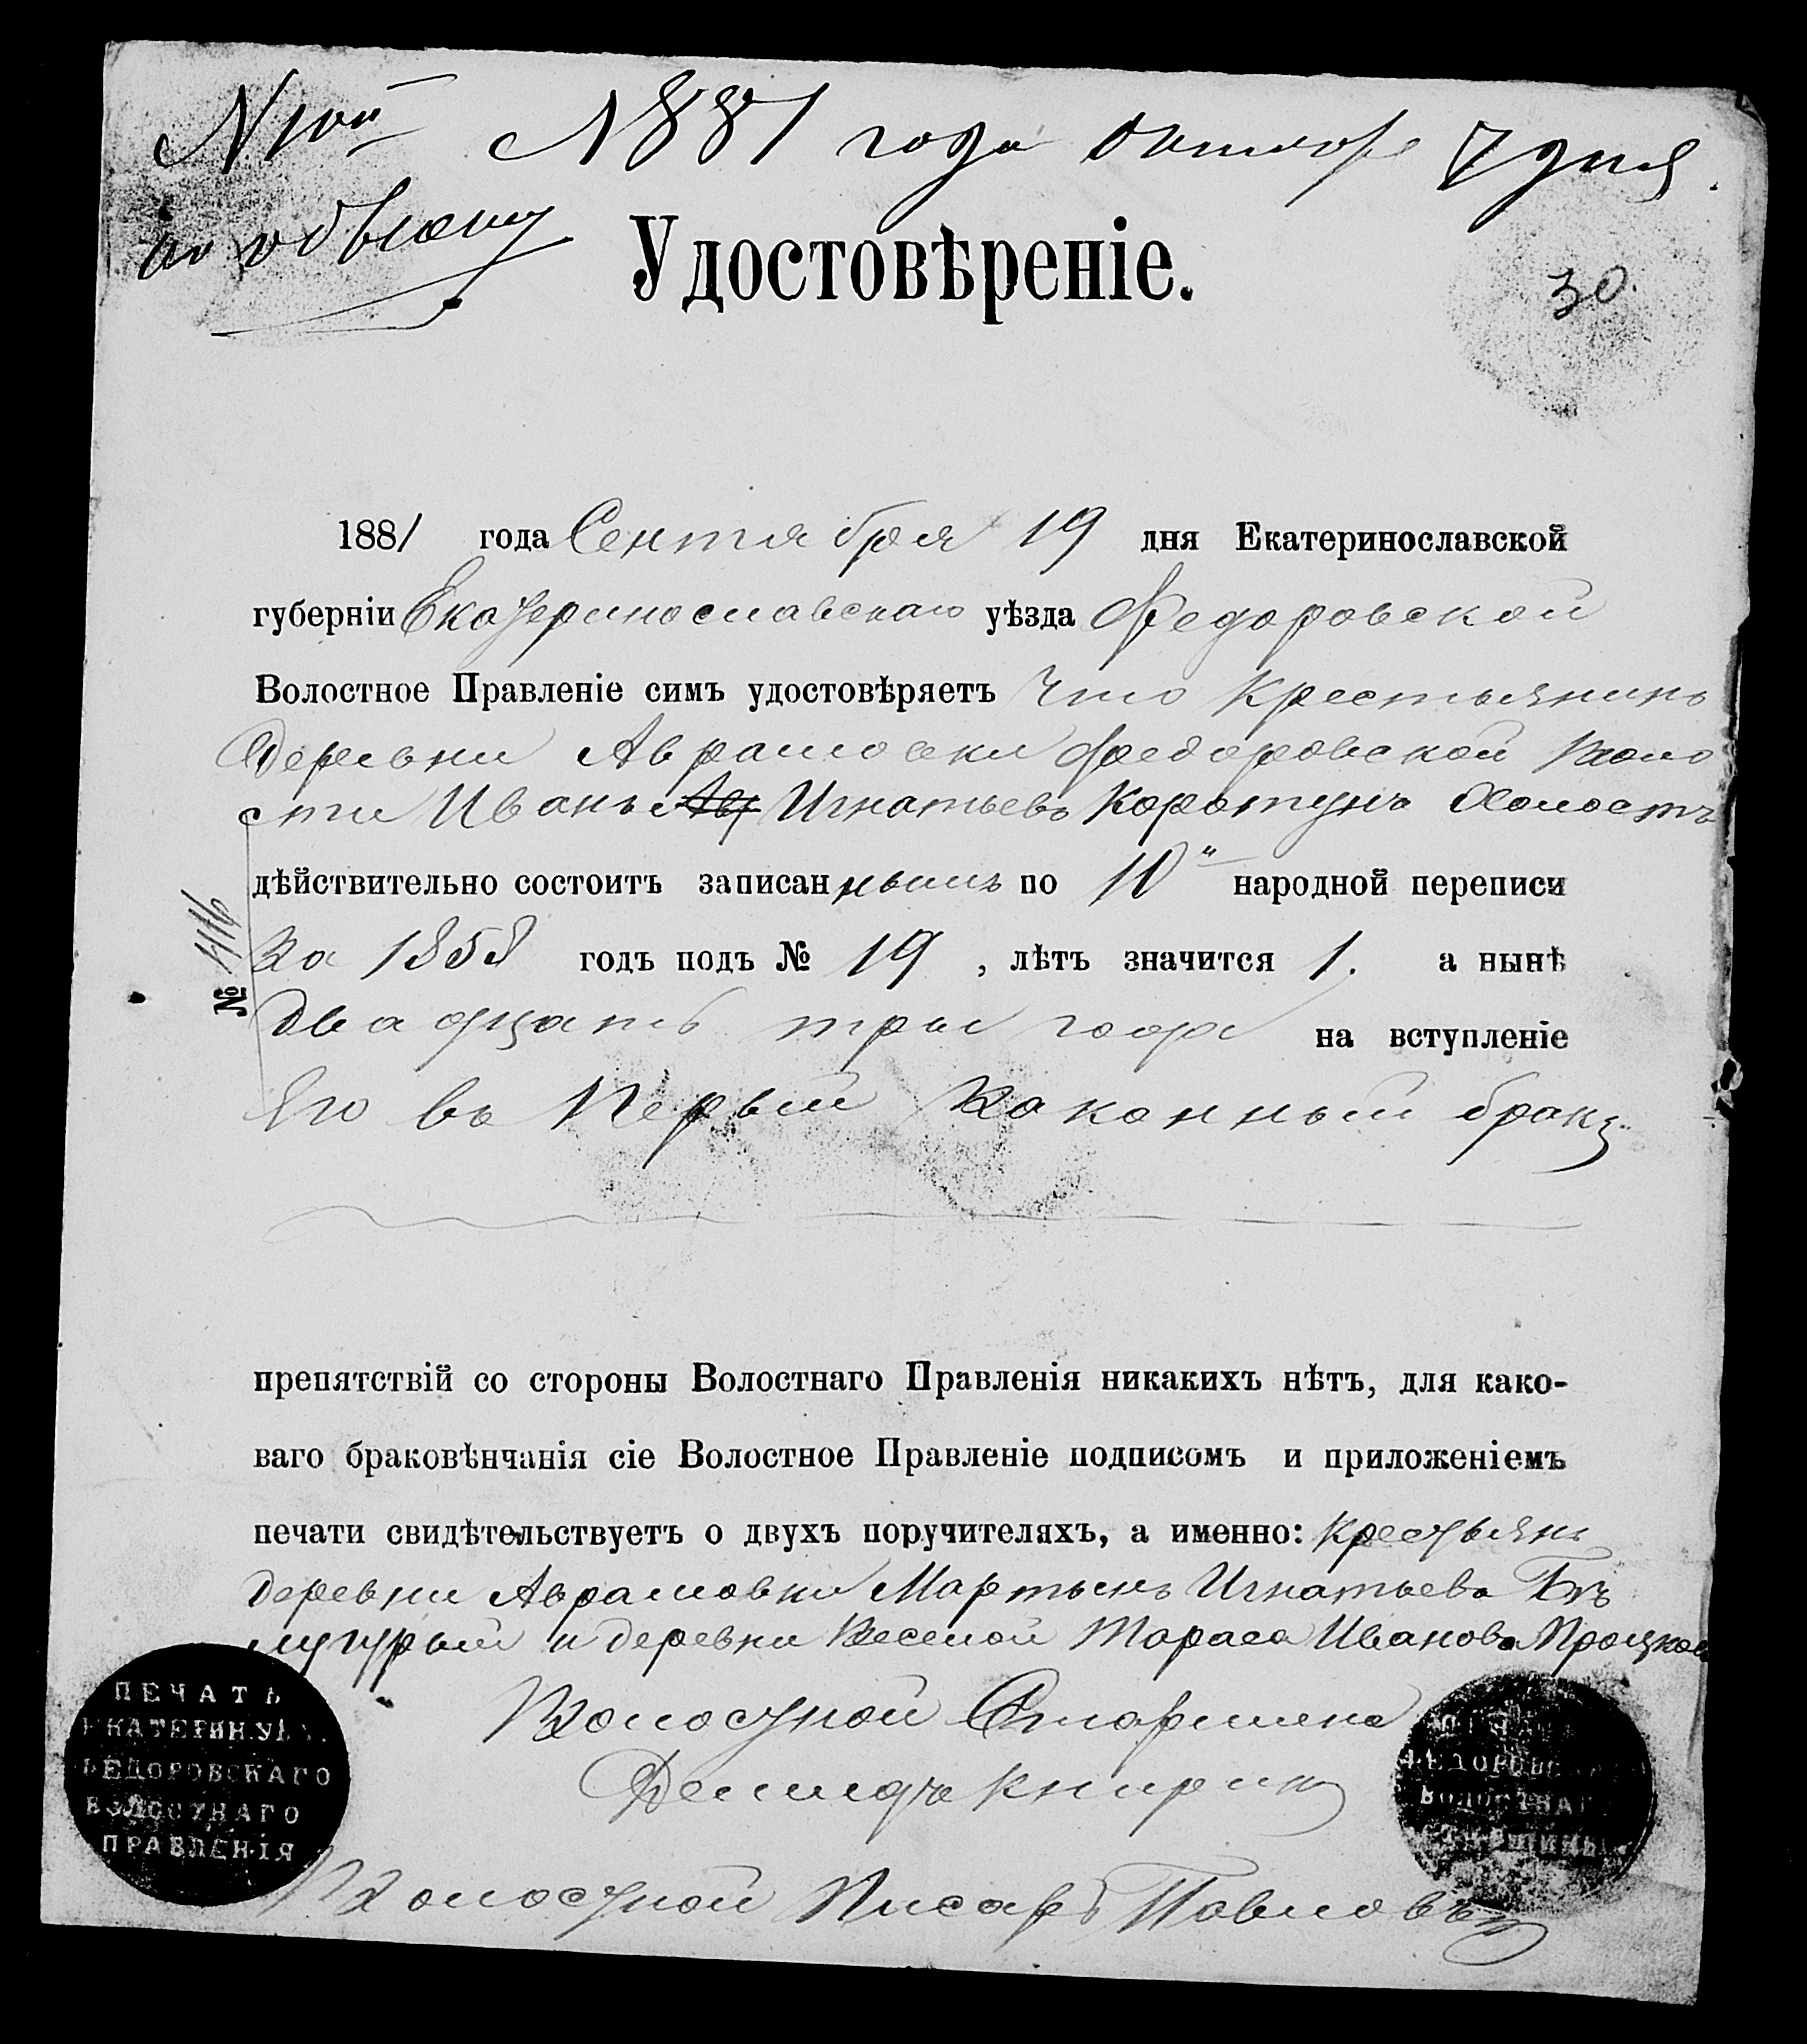 1881 года Октября 7 дня.
по обыску
Удостовѣреніе.
30.
1881 года Сентября 19 дня Екатеринославской
губерніи Екатеринославскаго уѣзда Федоровской
Волостное Правленіе симъ удостовѣряетъ что крестьянинъ
деревни Аврамовки Федоровской воло
сти Иванъ Игнатьевъ Коротунъ холостъ
дѣйствительно состоитъ записаннымъ по 10й народной переписи
за 1858 годъ подъ № 19, лѣтъ значится 1. а нынѣ
№ 1116
двадцать три года на вступленіе
его въ первый законный бракъ
препятствій со стороны Волостнаго Правленія никакихъ нѣтъ, для како-
ваго браковѣнчанія сіе Волостное Правленіе подписомъ и приложеніемъ
печати свидѣтельствуетъ о двухъ поручителяхъ, а именно: крестьянъ
деревни Аврамовки Мартынъ Игнатьева
и деревни Веселой Тараса Иванова
Волостной Старшина
Демидъ
Волостной Писарь Павловъ
ПЕЧАТЬ
ЕКАТЕРИН. УѢЗ.
ѲЕДОРОВСКАГО
ВОЛОСТНАГО
ПРАВЛЕНІЯ
ѲЕДОРОВСКАГО
ВОЛОСТНАГО
СТАРШИНЫ